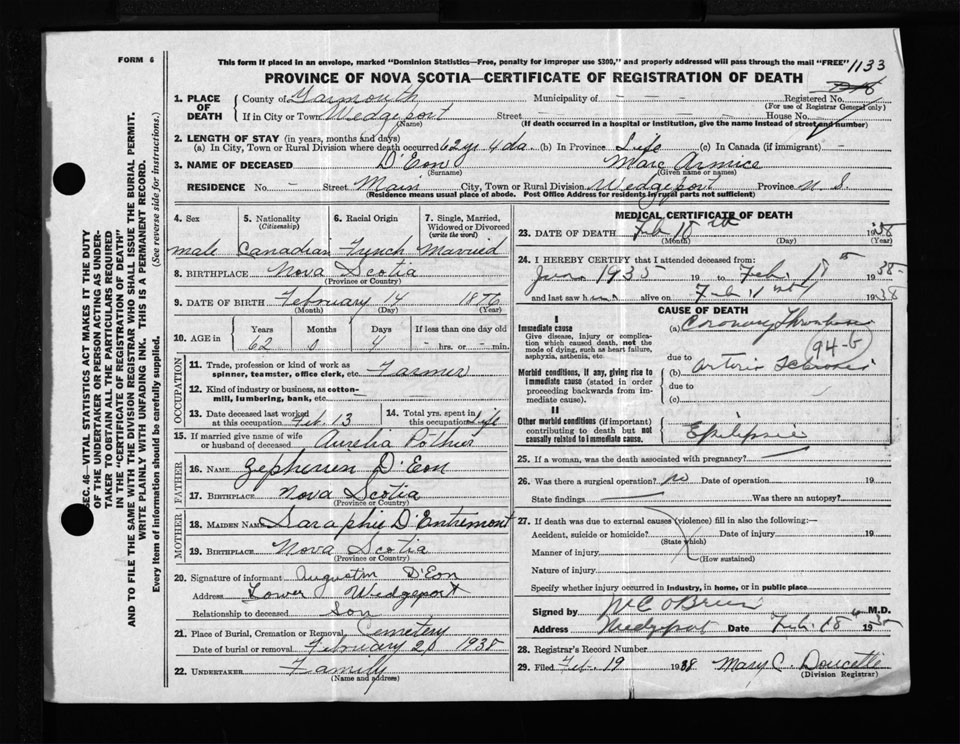 FORM 6
This form if placed in an envelope, marked "Dominion Statistics—Free, penalty for improper use $300," and properly addressed will pass through the mail "FREE"
1133
PROVINCE OF NOVA SCOTIA—CERTIFICATE OF REGISTRATION OF DEATH
SEC. 46—VITAL STATISTICS ACT MAKES IT THE DUTY
OF THE UNDERTAKER OR PERSON ACTING AS UNDER-
TAKER TO OBTAIN ALL THE PARTICULARS REQUIRED
IN THE "CERTIFICATE OF REGISTRATION OF DEATH"
AND TO FILE THE SAME WITH THE DIVISION REGISTRAR WHO SHALL ISSUE THE BURIAL PERMIT.
WRITE PLAINLY WITH UNFADING INK. THIS IS A PERMANENT RECORD.
Every item of information should be carefully supplied. (See reverse side for instructions.)
1. PLACE OF DEATH County of Yarmouth Municipality of — — — Registered No.
(For use of Registrar General only)
If in City or Town Wedgeport Street — — — House No.
(Name) (If death occurred in a hospital or institution, give the name instead of street and number)
2. LENGTH OF STAY (in years, months and days)
(a) In City, Town or Rural Division where death occurred 62 ys 4 da. (b) In Province Life (c) In Canada (if immigrant) —
3. NAME OF DECEASED D'Eon Marc Armice
(Surname) (Given name or names)
RESIDENCE No. — Street Main City, Town or Rural Division Wedgeport Province N. S.
(Residence means usual place of abode. Post Office Address for residents in rural parts not sufficient)
4. Sex 5. Nationality (Citizenship) 6. Racial Origin 7. Single, Married, Widowed or Divorced (write the word)
male Canadian French Married
8. BIRTHPLACE Nova Scotia
(Province or Country)
9. DATE OF BIRTH February 14 1876
(Month) (Day) (Year)
10. AGE in Years Months Days If less than one day old
62 0 4 — hrs. or — min.
OCCUPATION
11. Trade, profession or kind of work as
spinner, teamster, office clerk, etc. Farmer
12. Kind of industry or business, as cotton-
mill, lumbering, bank, etc. —
13. Date deceased last worked at this occupation Feb. 13 14. Total yrs. spent in this occupation Life
15. If married give name of wife
or husband of deceased Aurelia Pothier
FATHER
16. NAME Zepherien D'Eon
17. BIRTHPLACE Nova Scotia
(Province or Country)
MOTHER
18. MAIDEN NAME Saraphie D'Entremont
19. BIRTHPLACE Nova Scotia
(Province or Country)
20. Signature of informant Augustin D'Eon
Address Lower Wedgeport
Relationship to deceased Son
21. Place of Burial, Cremation or Removal Cemetery
Date of burial or removal February 20 1938
22. UNDERTAKER Family
(Name and address)
MEDICAL CERTIFICATE OF DEATH
23. DATE OF DEATH Feb 18th 1938
(Month) (Day) (Year)
24. I HEREBY CERTIFY that I attended deceased from:
1935 19 to Feb. 18 1938
and last saw him alive on Feb. 1938
CAUSE OF DEATH
I
Immediate cause
Give disease, injury or complica-
tion which caused death, not the
mode of dying, such as heart failure,
asphyxia, asthenia, etc.
(a) Coronary Thrombosis
94-G
due to
Morbid conditions, if any, giving rise to
immediate cause (stated in order
proceeding backwards from im-
mediate cause).
(b) Arterio Sclerosis
due to
(c)
II
Other morbid conditions (if important)
contributing to death but not
causally related to immediate cause.
Epilepsie
25. If a woman, was the death associated with pregnancy? —
26. Was there a surgical operation? no Date of operation 19
State findings — Was there an autopsy?
27. If death was due to external causes (violence) fill in also the following:—
Accident, suicide or homicide? Date of injury 19
(State which)
Manner of injury
(How sustained)
Nature of injury
Specify whether injury occurred in industry, in home, or in public place
Signed by O'Brien M.D.
Address Wedgeport Date Feb. 18 1938
28. Registrar's Record Number
29. Filed Feb. 19 1938 Mary C. Doucette
(Division Registrar)